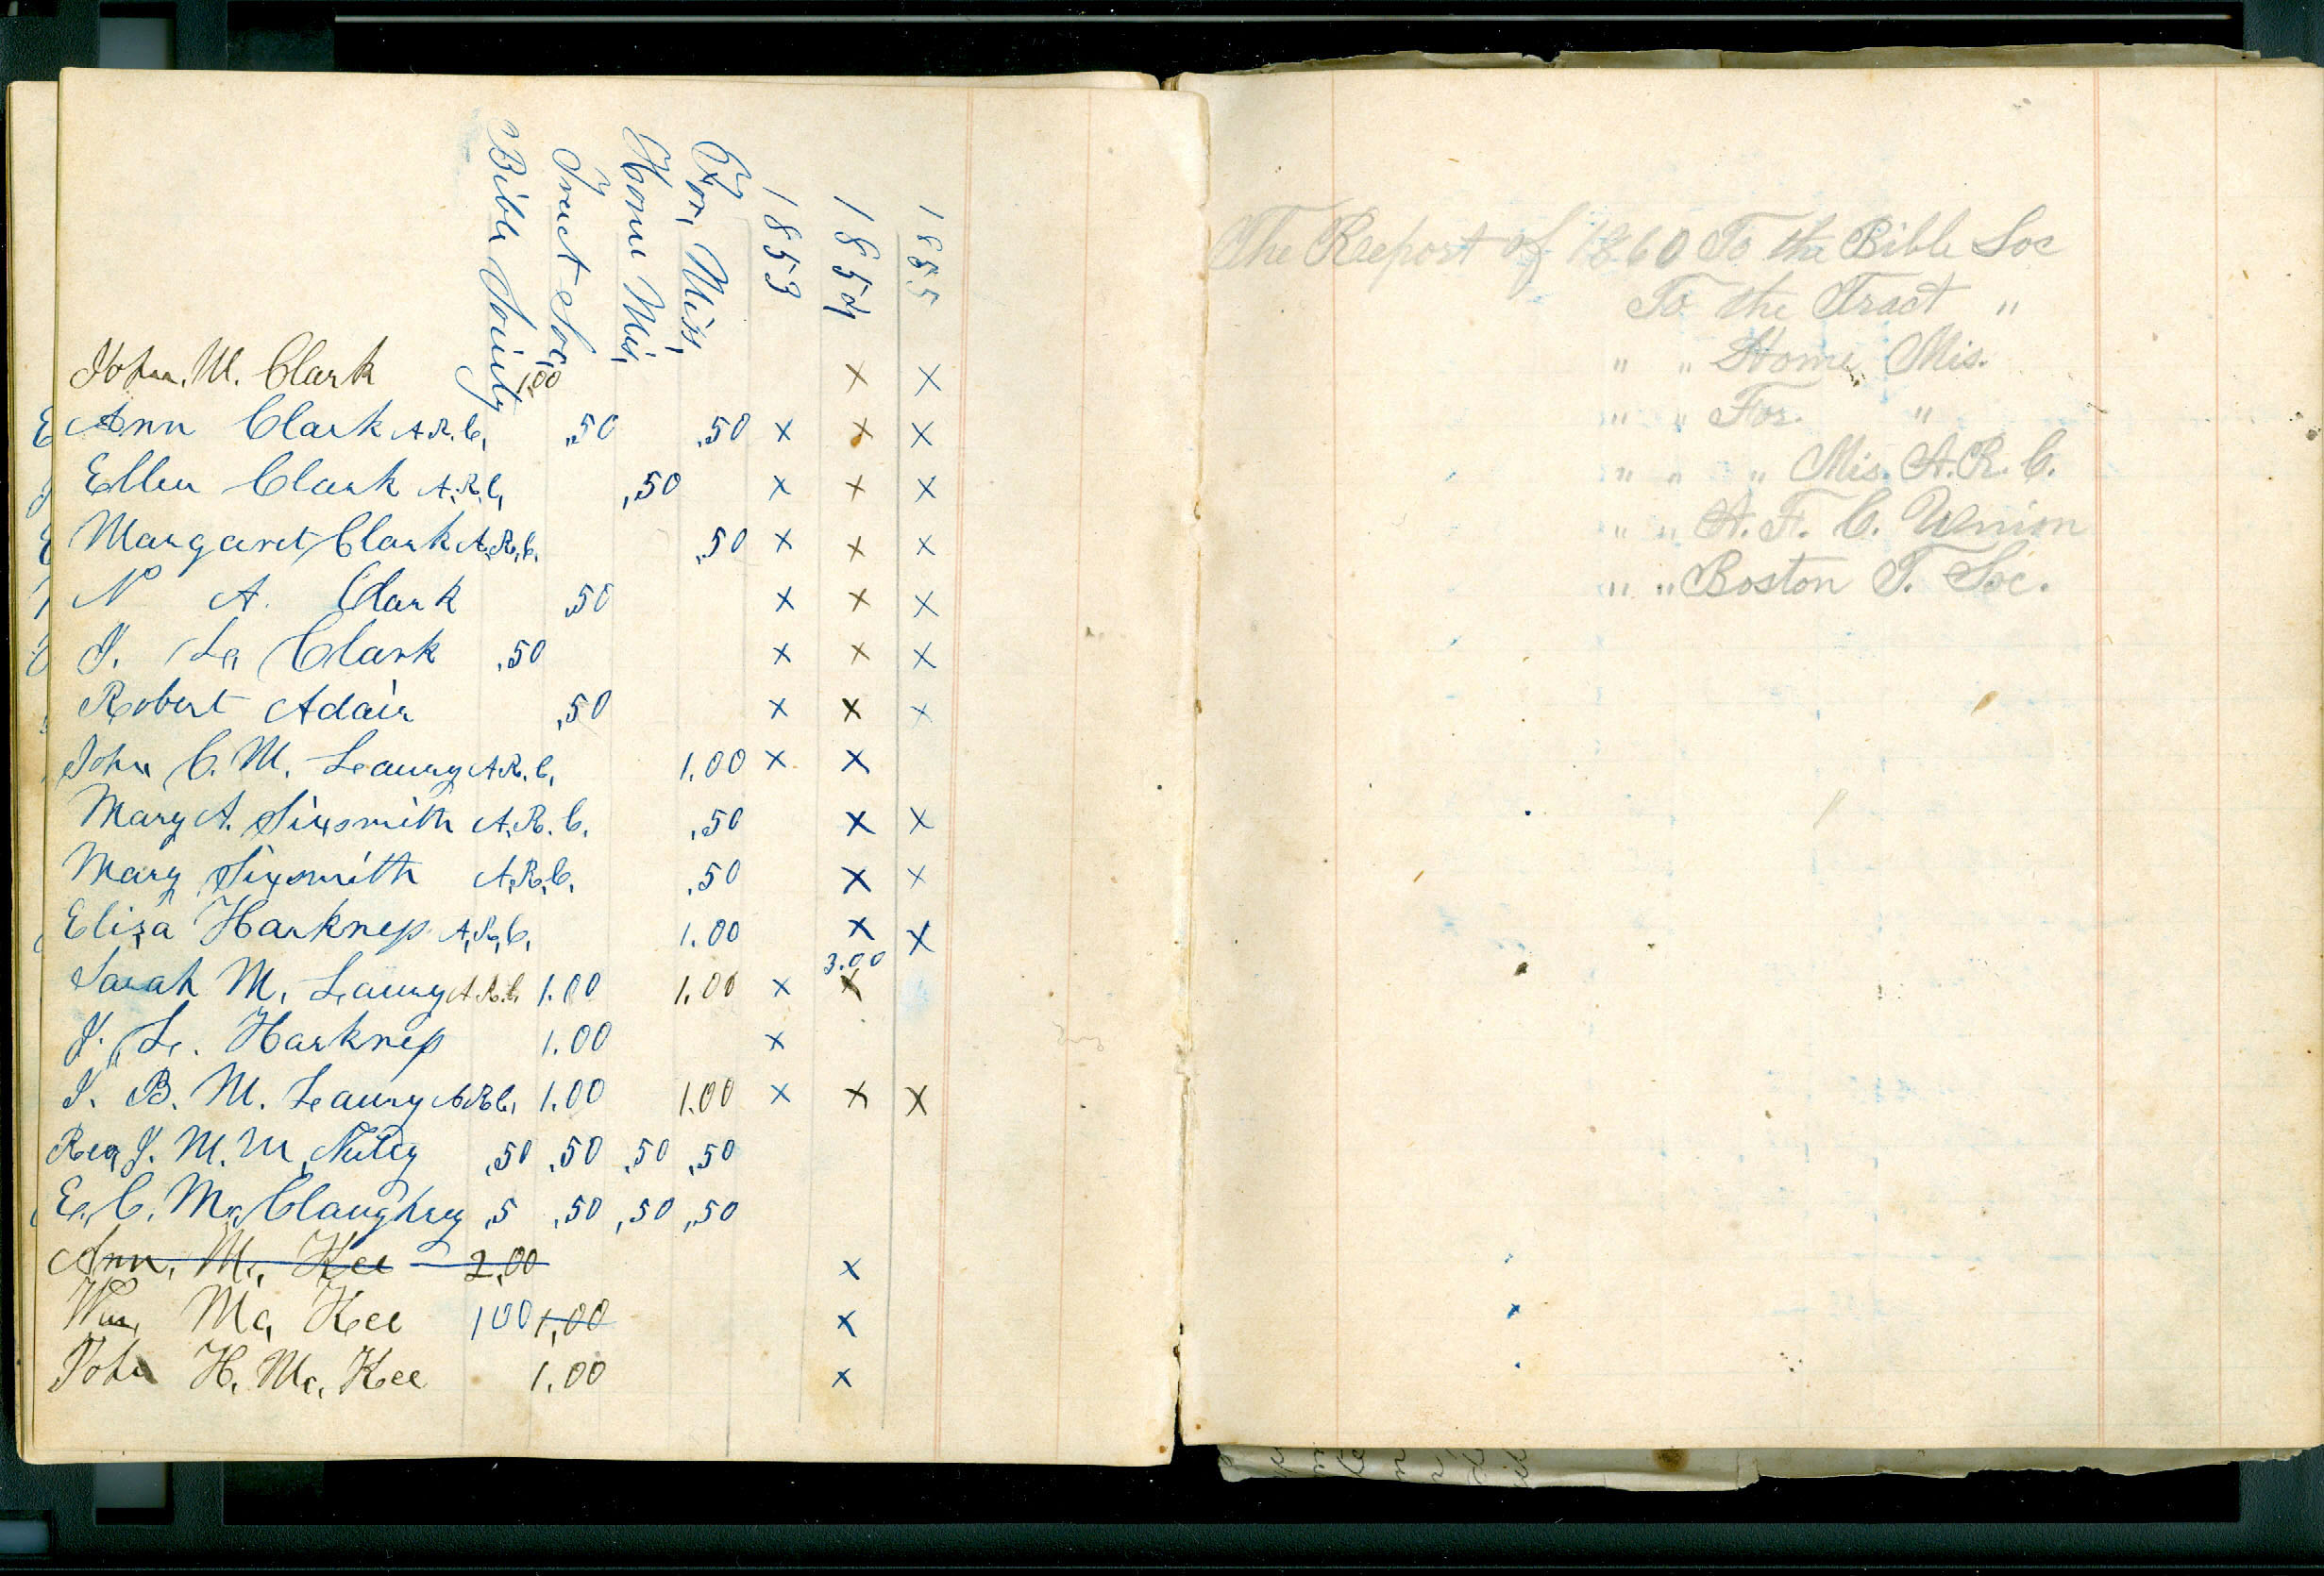 Bible Society
Tract Soc,
Home Mis,
For, Miss,
1853
1854
1855
John. M. Clark 1.00 x x
Ann Clark A.R.C, .50 .50 x x x
Ellen Clark A.R.C, ,50 x x x
Margaret Clark A.R.C. .50 x x x
N A. Clark .50 x x x
J. L. Clark .50 x x x
Robert Adair ,50 x x x
John C. M. Leaury A.R.C, 1.00 x x
Mary A. Sixsmith A.R.C. .50 x x
Mary Sixsmith A.R.C. .50 x x
Eliza Harkness A,R,C, 1.00 x x
3.00
Sarah M, Leaury A.R.C 1.00 1.00 x x
J. L. Harkness 1.00 x
J. B. M. Leaury A.R.C, 1.00 1.00 x x x
Rev, J. M. Mc Nuley ,50 .50 .50 .50
E. C. Mc, Claughrey ,5 .50 ,50 ,50
Ann, Mc, Kee 2.00 x
Wm, Mc, Kee 100 1,00 x
John H. Mc, Kee 1.00 x
The Report of 1860 To the Bible Soc
To the Tract "
" " Home Mis.
" " For. "
" " " Mis. A.R.C.
" " A. F. C. Union
" " Boston T. Soc.